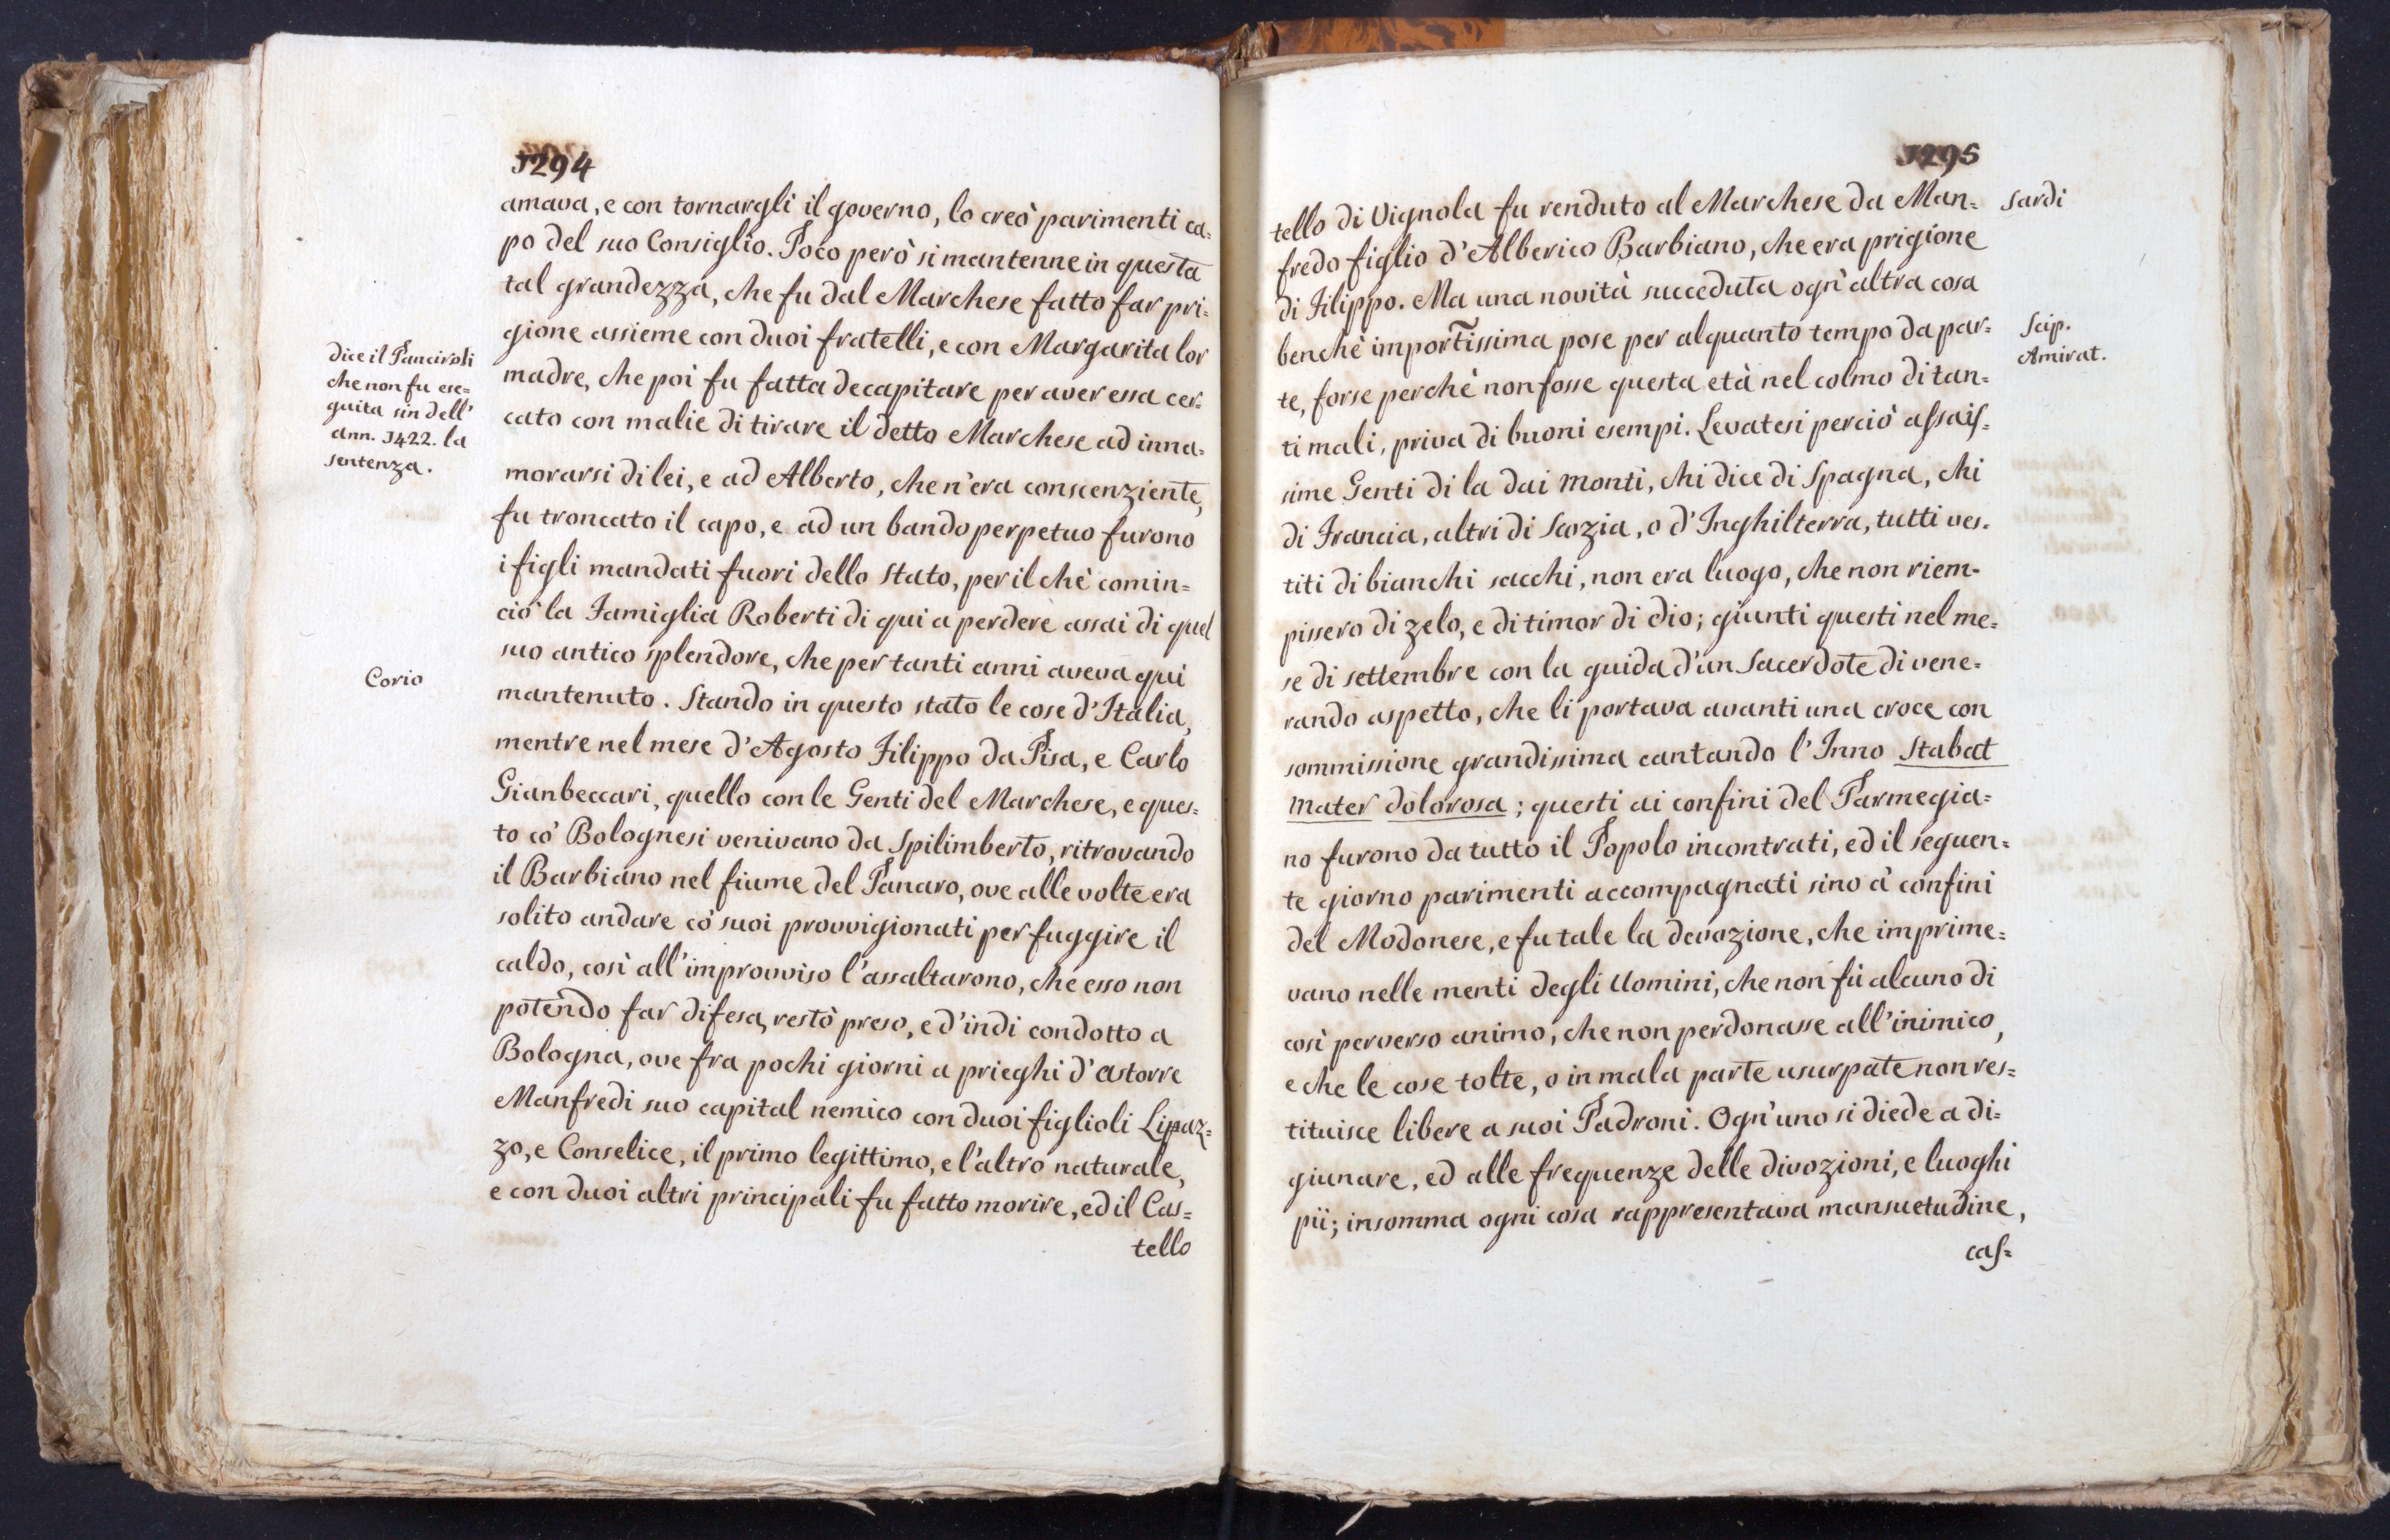 1294
amava, e con tornargli il governo, lo creò parimenti ca=
po del suo Consiglio. Poco però si mantenne in questa
tal grandezza, che fu dal Marchese fatto far pri=
gione assieme con duoi fratelli, e con Margarita lor
madre, che poi fu fatta decapitare per aver essa cer=
cato con malie di tirare il detto Marchese ad inna=
morarsi di lei, e ad Alberto, che n'era conscenziente,
fu troncato il capo, e ad un bando perpetuo furono
i figli mandati fuori dello Stato, per il chè comin=
ciò la Famiglia Roberti di qui a perdere assai di quel
suo antico splendore, che per tanti anni aveva qui
mantenuto. Stando in questo stato le cose d'Italia,
mentre nel mese d'Agosto Filippo da Pisa, e Carlo
Gianbeccari, quello con le Genti del Marchese, e ques=
to cò Bolognesi venivano da Spilimberto, ritrovando
il Barbiano nel fiume del Panaro, ove alle volte era
solito andare cò suoi provvigionati per fuggire il
caldo, così all'improvviso l'assaltarono, che esso non
potendo far difesa, restò preso, e d'indi condotto a
Bologna, ove fra pochi giorni a prieghi d'Astorre
Manfredi suo capital nemico con duoi figlioli Lipaz=
zo, e Conselice, il primo legittimo, e l'altro naturale,
e con duoi altri principali fu fatto morire, ed il Cas=
tello
dice il Panciroli
che non fu ese=
guita sin dell'
ann. 1422. la
sentenza.
Corio
1295
tello di Vignola fu renduto al Marchese da Man=
fredo figlio d'Alberico Barbiano, che era prigione
di Filippo. Ma una novità succeduta ogn'altra cosa
benchè import̃issima pose per alquanto tempo da par=
te, forse perchè non fosse questa età nel colmo di tan=
ti mali, priva di buoni esempi. Levatesi perciò aſsaiſ=
sime Genti di la dai Monti, chi dice di Spagna, chi
di Francia, altri di Scozia, o d'Inghilterra, tutti ves=
titi di bianchi sacchi, non era luogo, che non riem=
pissero di zelo, e di timor di dio; giunti questi nel me=
se di settembre con la guida d'un Sacerdote di vene=
rando aspetto, che li portava avanti una croce con
sommissione grandissima cantando l'Inno Stabat
Mater dolorosa; questi ai confini del Parmegia=
no furono da tutto il Popolo incontrati, ed il seguen=
te giorno parimenti accompagnati sino à confini
del Modonese, e fu tale la devozione, che imprime=
vano nelle menti degli Uomini, che non fù alcuno di
così perverso animo, che non perdonasse all'inimico,
e che le cose tolte, o in mala parte usurpate non res=
tituisce libere a suoi Padroni. Ogn'uno si diede a di=
giunare, ed alle frequenze delle divozioni, e luoghi
pii; insomma ogni cosa rappresentava mansuetudine,
caſ=
Sardi
Scip.
Amirat.